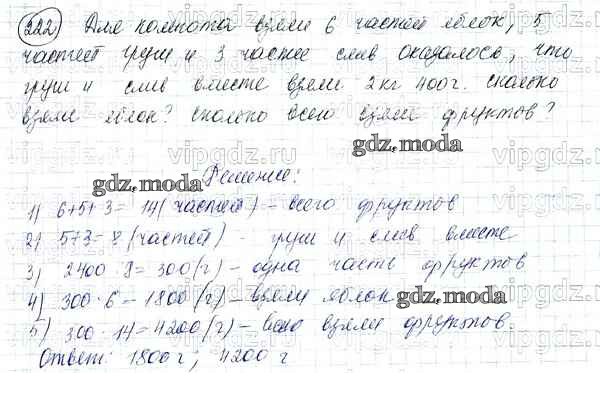 222) Для компота взяли 6 частей яблок, 5
частей груш и 3 части слив оказалось, что
груш и слив вместе взяли 2 кг 400 г. сколько
взяли яблок? сколько всего взяли фруктов?
gdz.moda
Решение:
gdz.moda
1) 6+5+3= 14 (частей) - всего фруктов
2) 5+3=8 (частей) - груш и слив вместе
3) 2400:8=300 (г) - одна часть фруктов
4) 300·6=1800 (г) - взяли яблок
gdz.moda
5) 300·14=4200 (г) - всего взяли фруктов.
Ответ: 1800 г; 4200 г